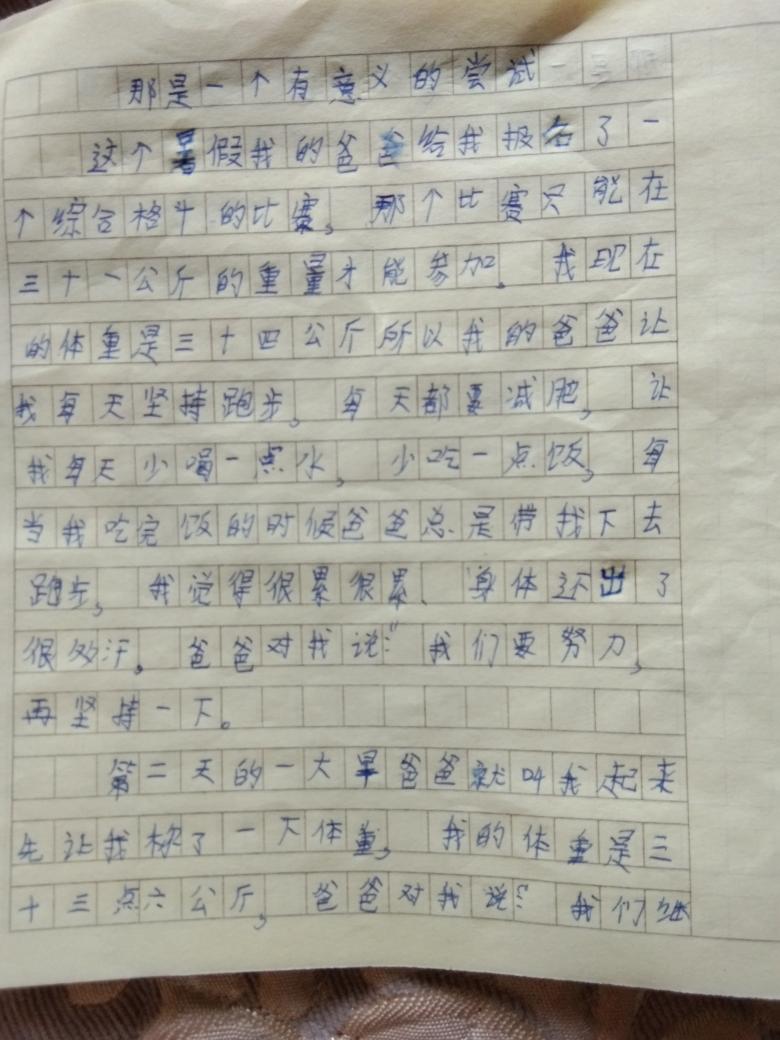 那是一个有意义的尝试
这个暑假我的爸爸给我报名了一
个综合格斗的比赛，那个比赛只能在
三十一公斤的重量才能参加。我现在
的体重是三十四公斤所以我的爸爸让
我每天坚持跑步，每天都要减肥，让
我每天少喝一点水，少吃一点饭，每
当我吃完饭的时候爸爸总是带我下去
跑步，我觉得很累很累、身体还出了
很多汗。爸爸对我说：“我们要努力，
再坚持一下。
第二天的一大早爸爸就叫我起来
先让我称了一下体重，我的体重是三
十三点六公斤，爸爸对我说：“我们继